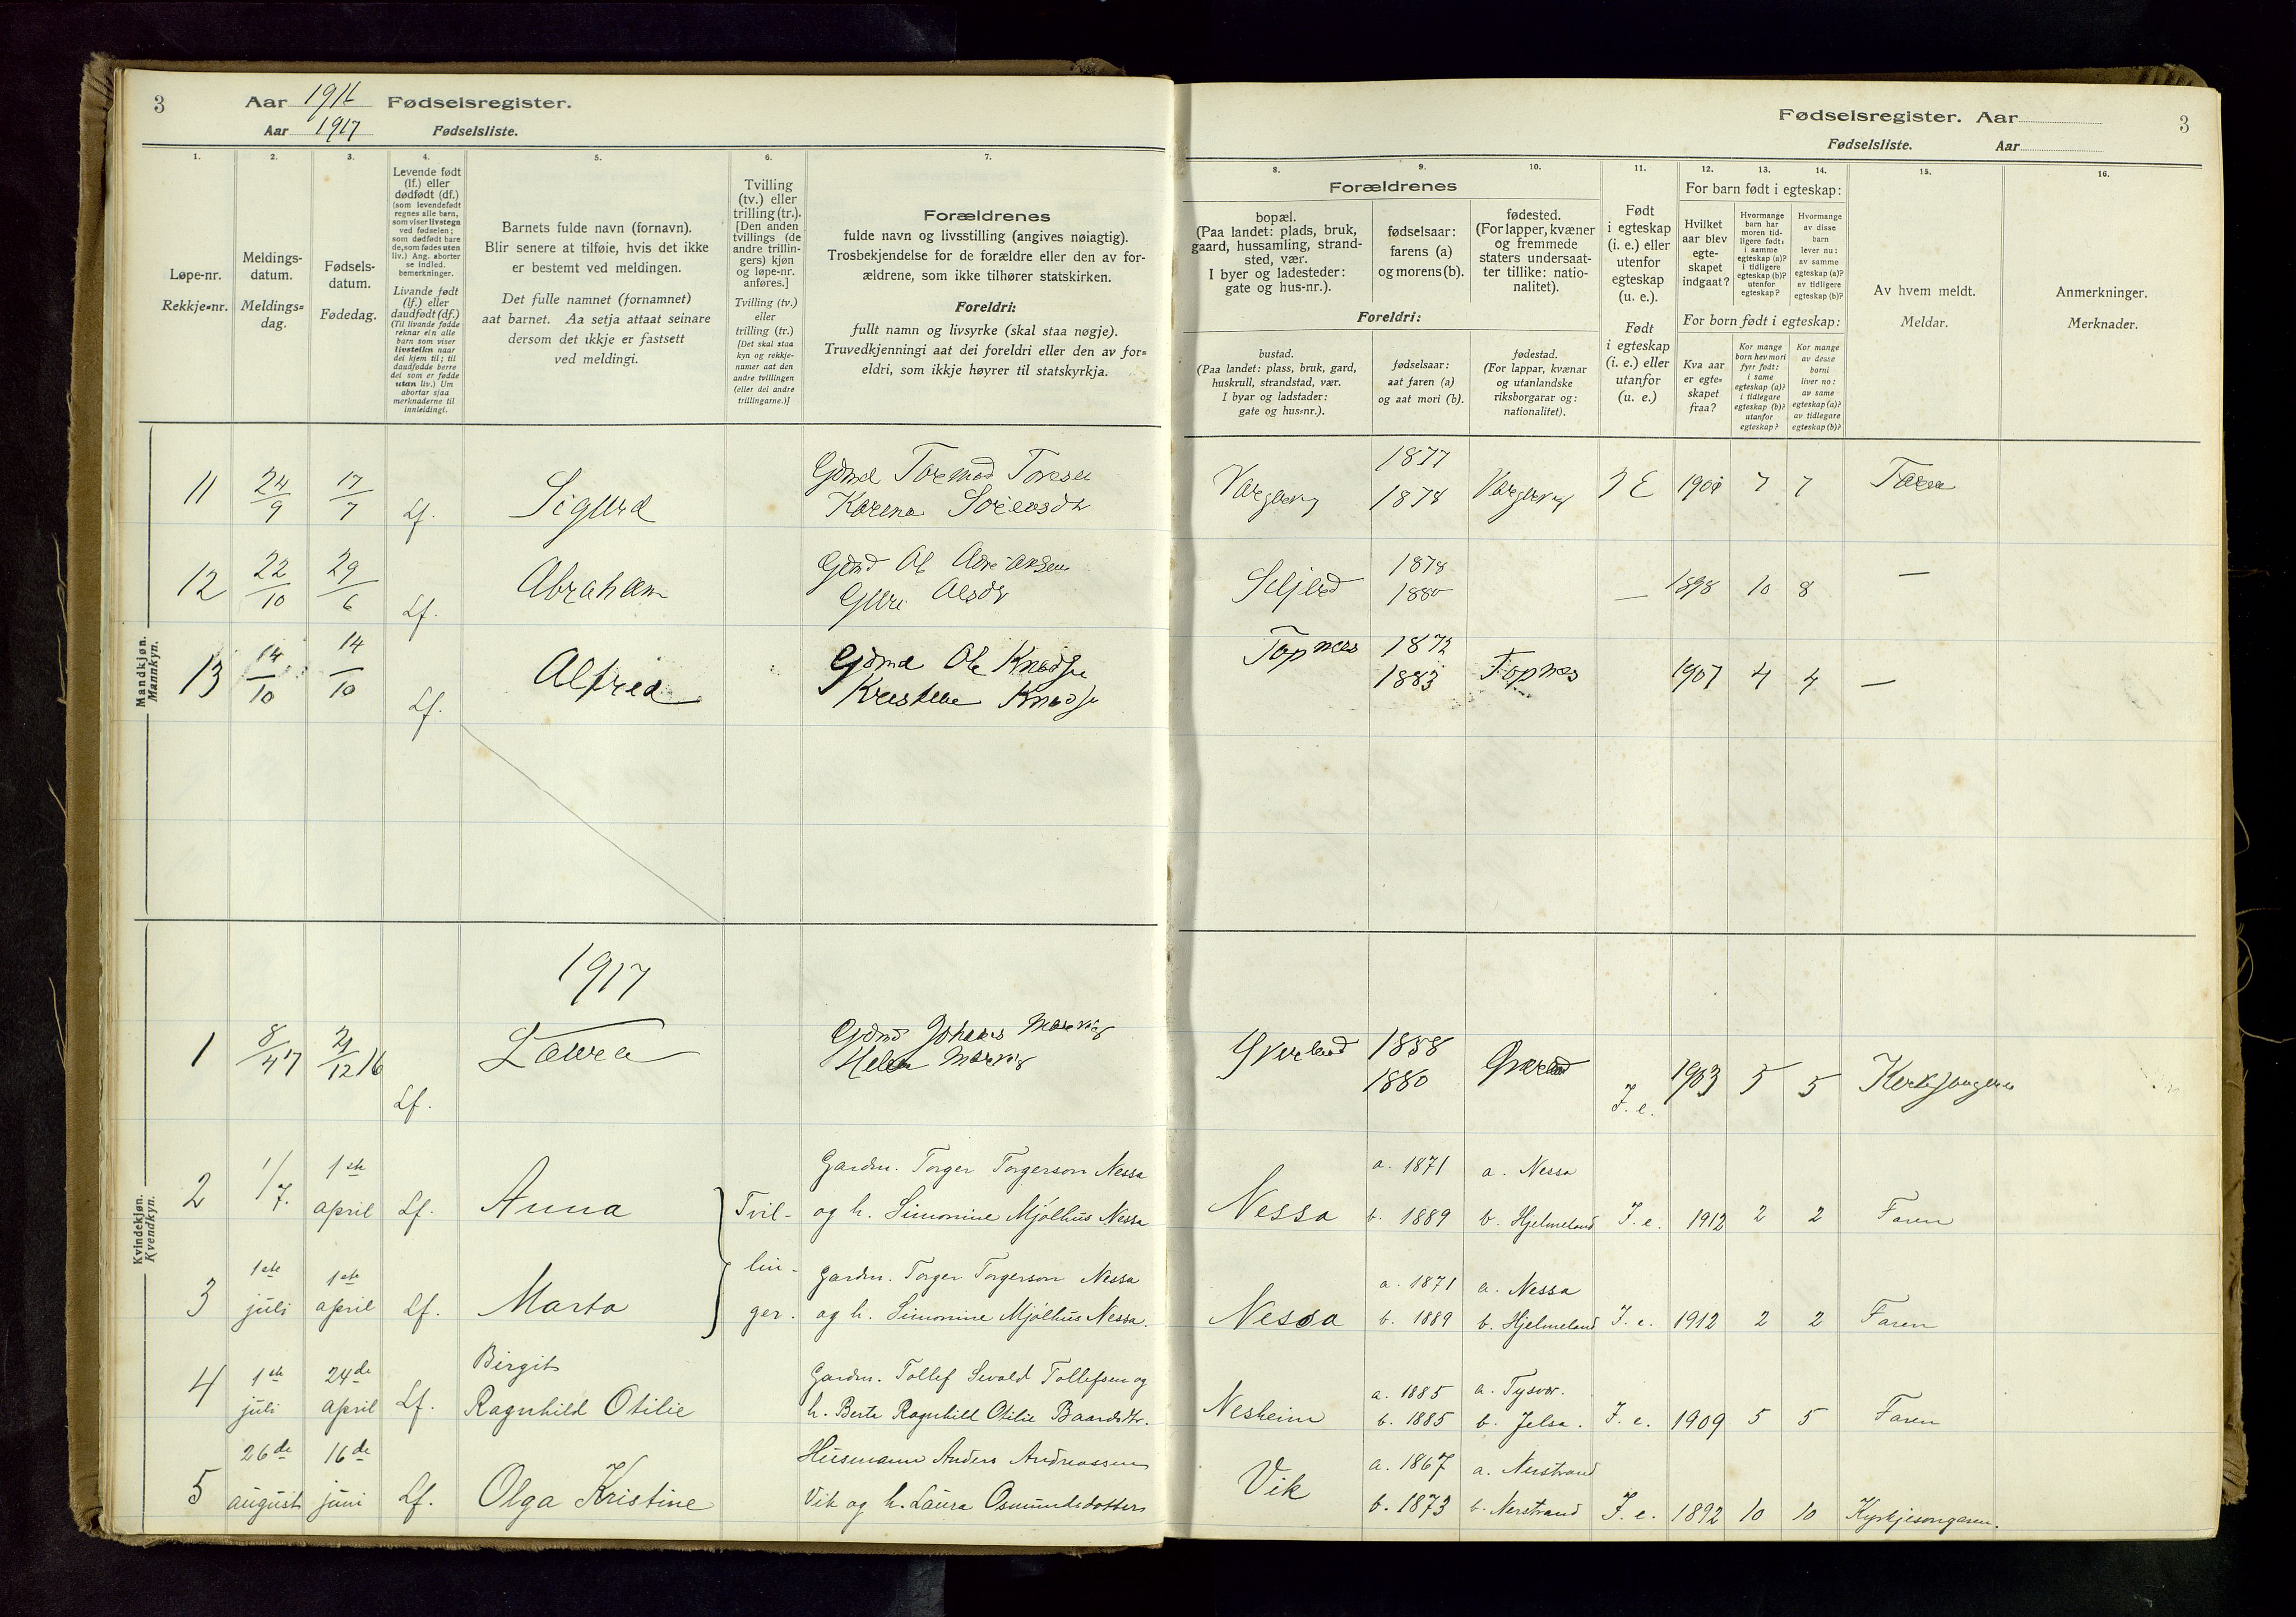 3
Aar 1916 Fødselsregister.
Aar 1917 Fødselsliste.
1. 2. 3. 4. 5. 6. 7.
Løpe-nr.
Rekkje-nr.
Meldings-
datum.
Meldings-
dag.
Fødsels-
datum.
Fødedag.
Levende født
(lf.) eller
dødfødt (df.)
(som levendefødt
regnes alle barn,
som viser livstegn
ved fødselen;
som dødfødt bare
de, som fødes uten
liv.) Ang. aborter
se indled.
bemerkninger.
Livande født
(lf.) eller
daudfødt (df.)
(Til livande fødde
reknar ein alle
barn som viser
livsteikn naar
dei kjem til; til
daudfødde berre
dei som er fødde
utan liv.) Um
abortar sjaa
merknaderne til
innleidingi.
Barnets fulde navn (fornavn).
Blir senere at tilføie, hvis det ikke
er bestemt ved meldingen.
Det fulle namnet (fornamnet)
aat barnet. Aa setja attaat seinare
dersom det ikkje er fastsett
ved meldingi.
Tvilling
(tv.) eller
trilling (tr.).
[Den anden
tvillings (de
andre trillin-
gers) kjøn
og løpe-nr.
anføres.]
Tvilling (tv.)
eller
trilling (tr.)
[Det skal staa
kyn og rekkje-
numer aat den
andre tvillingen
(eller dei andre
trillingarne.)]
Forældrenes
fulde navn og livsstilling (angives nøiagtig).
Trosbekjendelse for de forældre eller den av for-
ældrene, som ikke tilhører statskirken.
Foreldri:
fullt namn og livsyrke (skal staa nøgje).
Truvedkjenningi aat dei foreldri eller den av for-
eldri, som ikkje høyrer til statskyrkja.
Mandkjøn.
Mannkyn.
11 24/9 17/7 Lf. Sigurd
Gdmd Tormod Toresen
Karena Sørensdtr
12 22/10 29/6 Lf. Abraham
Gdmd Ol Adriansen
Guri Olsdtr
13 14/10 14/10 Lf. Alfred
Gdmd Ole Knudsen
Kristine Knudsen
Kvindekjøn.
Kvendkyn.
1917
1 8/4 17 21/12 16 Lf. Laura
Gdmd Johannes
Helene
2 1/7. 1ste april Lf. Anna Tvil-
Gardm. Torger Torgerson Nessa
og h. Simonine Mjølhus Nessa
3 1ste juli 1ste april Lf. Marta lin-
ger.
Gardm. Torger Torgerson Nessa
og h. Simonine Mjølhus Nessa.
4 1ste juli 24de april Lf. Birgit
Ragnhild Otilie
Gardm. Tollef Sivald Tollefsen og
h. Berta Ragnhild Otilie Baardsdtr.
5 26de august 16de juni Lf. Olga Kristine
Husmann Anders Andreassen
Vik og h. Laura Osmundsdotter
Fødselsregister. Aar
Fødselsliste. Aar
3
8. 9. 10. 11. 12. 13. 14. 15. 16.
Forældrenes
bopæl.
(Paa landet: plads, bruk,
gaard, hussamling, strand-
sted, vær.
I byer og ladesteder:
gate og hus-nr.).
fødselsaar:
farens (a)
og morens (b).
fødested.
(For lapper, kvæner
og fremmede
staters undersaat-
ter tillike: natio-
nalitet).
Foreldri:
bustad.
(Paa landet: plass, bruk, gard,
huskrull, strandstad, vær.
I byar og ladstader:
gate og hus-nr.).
fødselsaar:
aat faren (a)
og aat mori (b).
fødestad.
(For lappar, kvænar
og utanlandske
riksborgarar og:
nationalitet).
Født
i egteskap
(i. e.) eller
utenfor
egteskap
(u. e.).
Født
i egteskap
(i. e.) eller
utanfor
(u. e.)
For barn født i egteskap:
Hvilket
aar blev
egte-
skapet
indgaat?
Hvormange
barn har
moren tid-
ligere født:
i samme
egteskap (a)?
i tidligere
egteskap (b)?
utenfor
egteskap?
Hvormange
av disse
barn
lever nu:
av samme
egteskap (a)?
av tidligere
egteskap (b)?
For born født i egteskap:
Kva aar
er egte-
skapet
fraa?
Kor mange
born hev mori
fyrr født:
i same
egteskap (a)?
i tidlegare
egteskap (b)?
utanfor
egteskap?
Kor mange
av desse
borni
liver no:
av same
egteskap (a)?
av tidlegare
egteskap (b)?
Av hvem meldt.
Meldar.
Anmerkninger.
Merknader.
1877
1878 I E 7 7 Faren
1878
1880 — 1898 10 8 —
Topnes 1872
1883 Topnes 1907 4 4 —
1858
1880 I. e. 1903 5 5
Nessa a. 1871 a. Nessa
b. 1889 b. Hjelmeland I. e. 1912 2 2 Faren
Nessa a. 1871 a. Nessa
b. 1889 b. Hjelmeland I. e. 1912 2 2 Faren
Nesheim a. 1885 a. Tysvær.
b. 1885 b. Jelsa. I. e. 1909 5 5 Faren
Vik a. 1867 a. Nerstrand
b. 1873 b. Nerstrand I. e. 1892 10 10 Kyrkjesongaren.